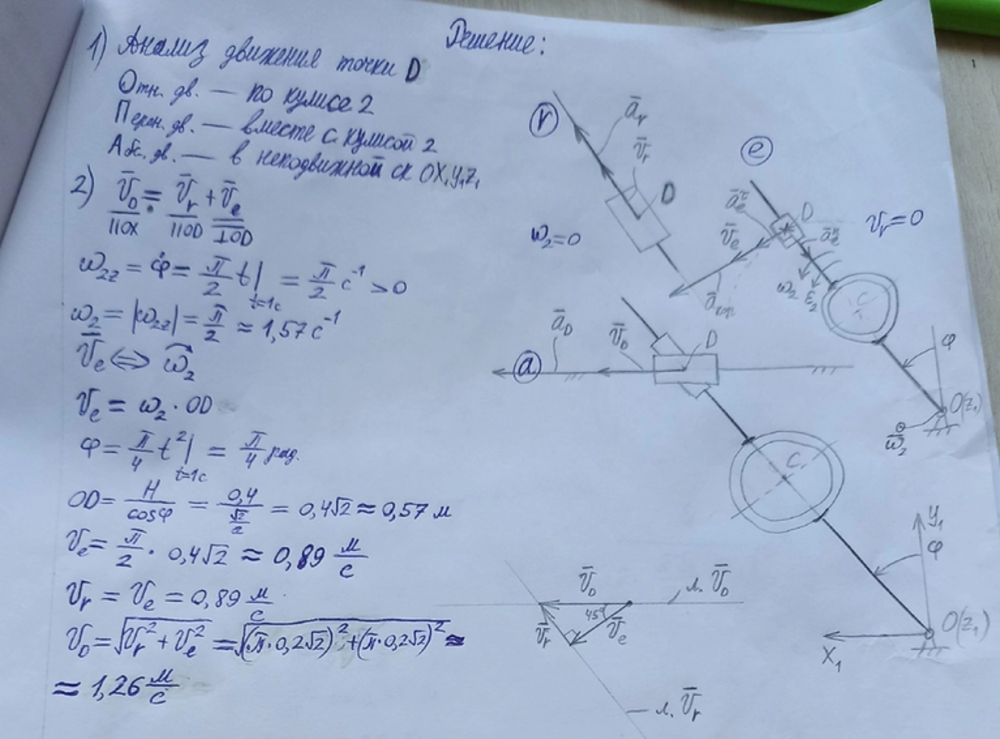 Решение:
1) Анализ движения точки D
Отн. дв. — по кулисе 2
Перен. дв. — вместе с кулисой 2
Абс. дв. — в неподвижной ск OX₁Y₁Z₁
2) V̄_D = V̄_r + V̄_e
||OX ||OD ⊥OD
ω₂z = φ̇ = π/2 t|t=1c = π/2 c⁻¹ > 0
ω₂ = |ω₂z| = π/2 ≈ 1,57 c⁻¹
V̄e ⇔ ω₂
Ve = ω₂ · OD
φ = π/4 t²|t=1c = π/4 рад.
OD = H/cosφ = 0,4/(√2/2) = 0,4√2 ≈ 0,57 м
Ve = π/2 · 0,4√2 ≈ 0,89 м/с
Vr = Ve = 0,89 м/с
V_D = √(Vr² + Ve²) = √((π·0,2√2)² + (π·0,2√2)²) ≈
≈ 1,26 м/с
r
ār
V̄r
D
ω₂=0
e
āeᵗ
D
āeⁿ
Vr=0
V̄e
ω₂
ε₂
āкор
C
φ
O(z₁)
ω̄₂
ā_D
V̄_D
D
a
C
y₁
φ
O(z₁)
X₁
V̄_D
л. V̄_D
45°
V̄r
V̄e
л. V̄r